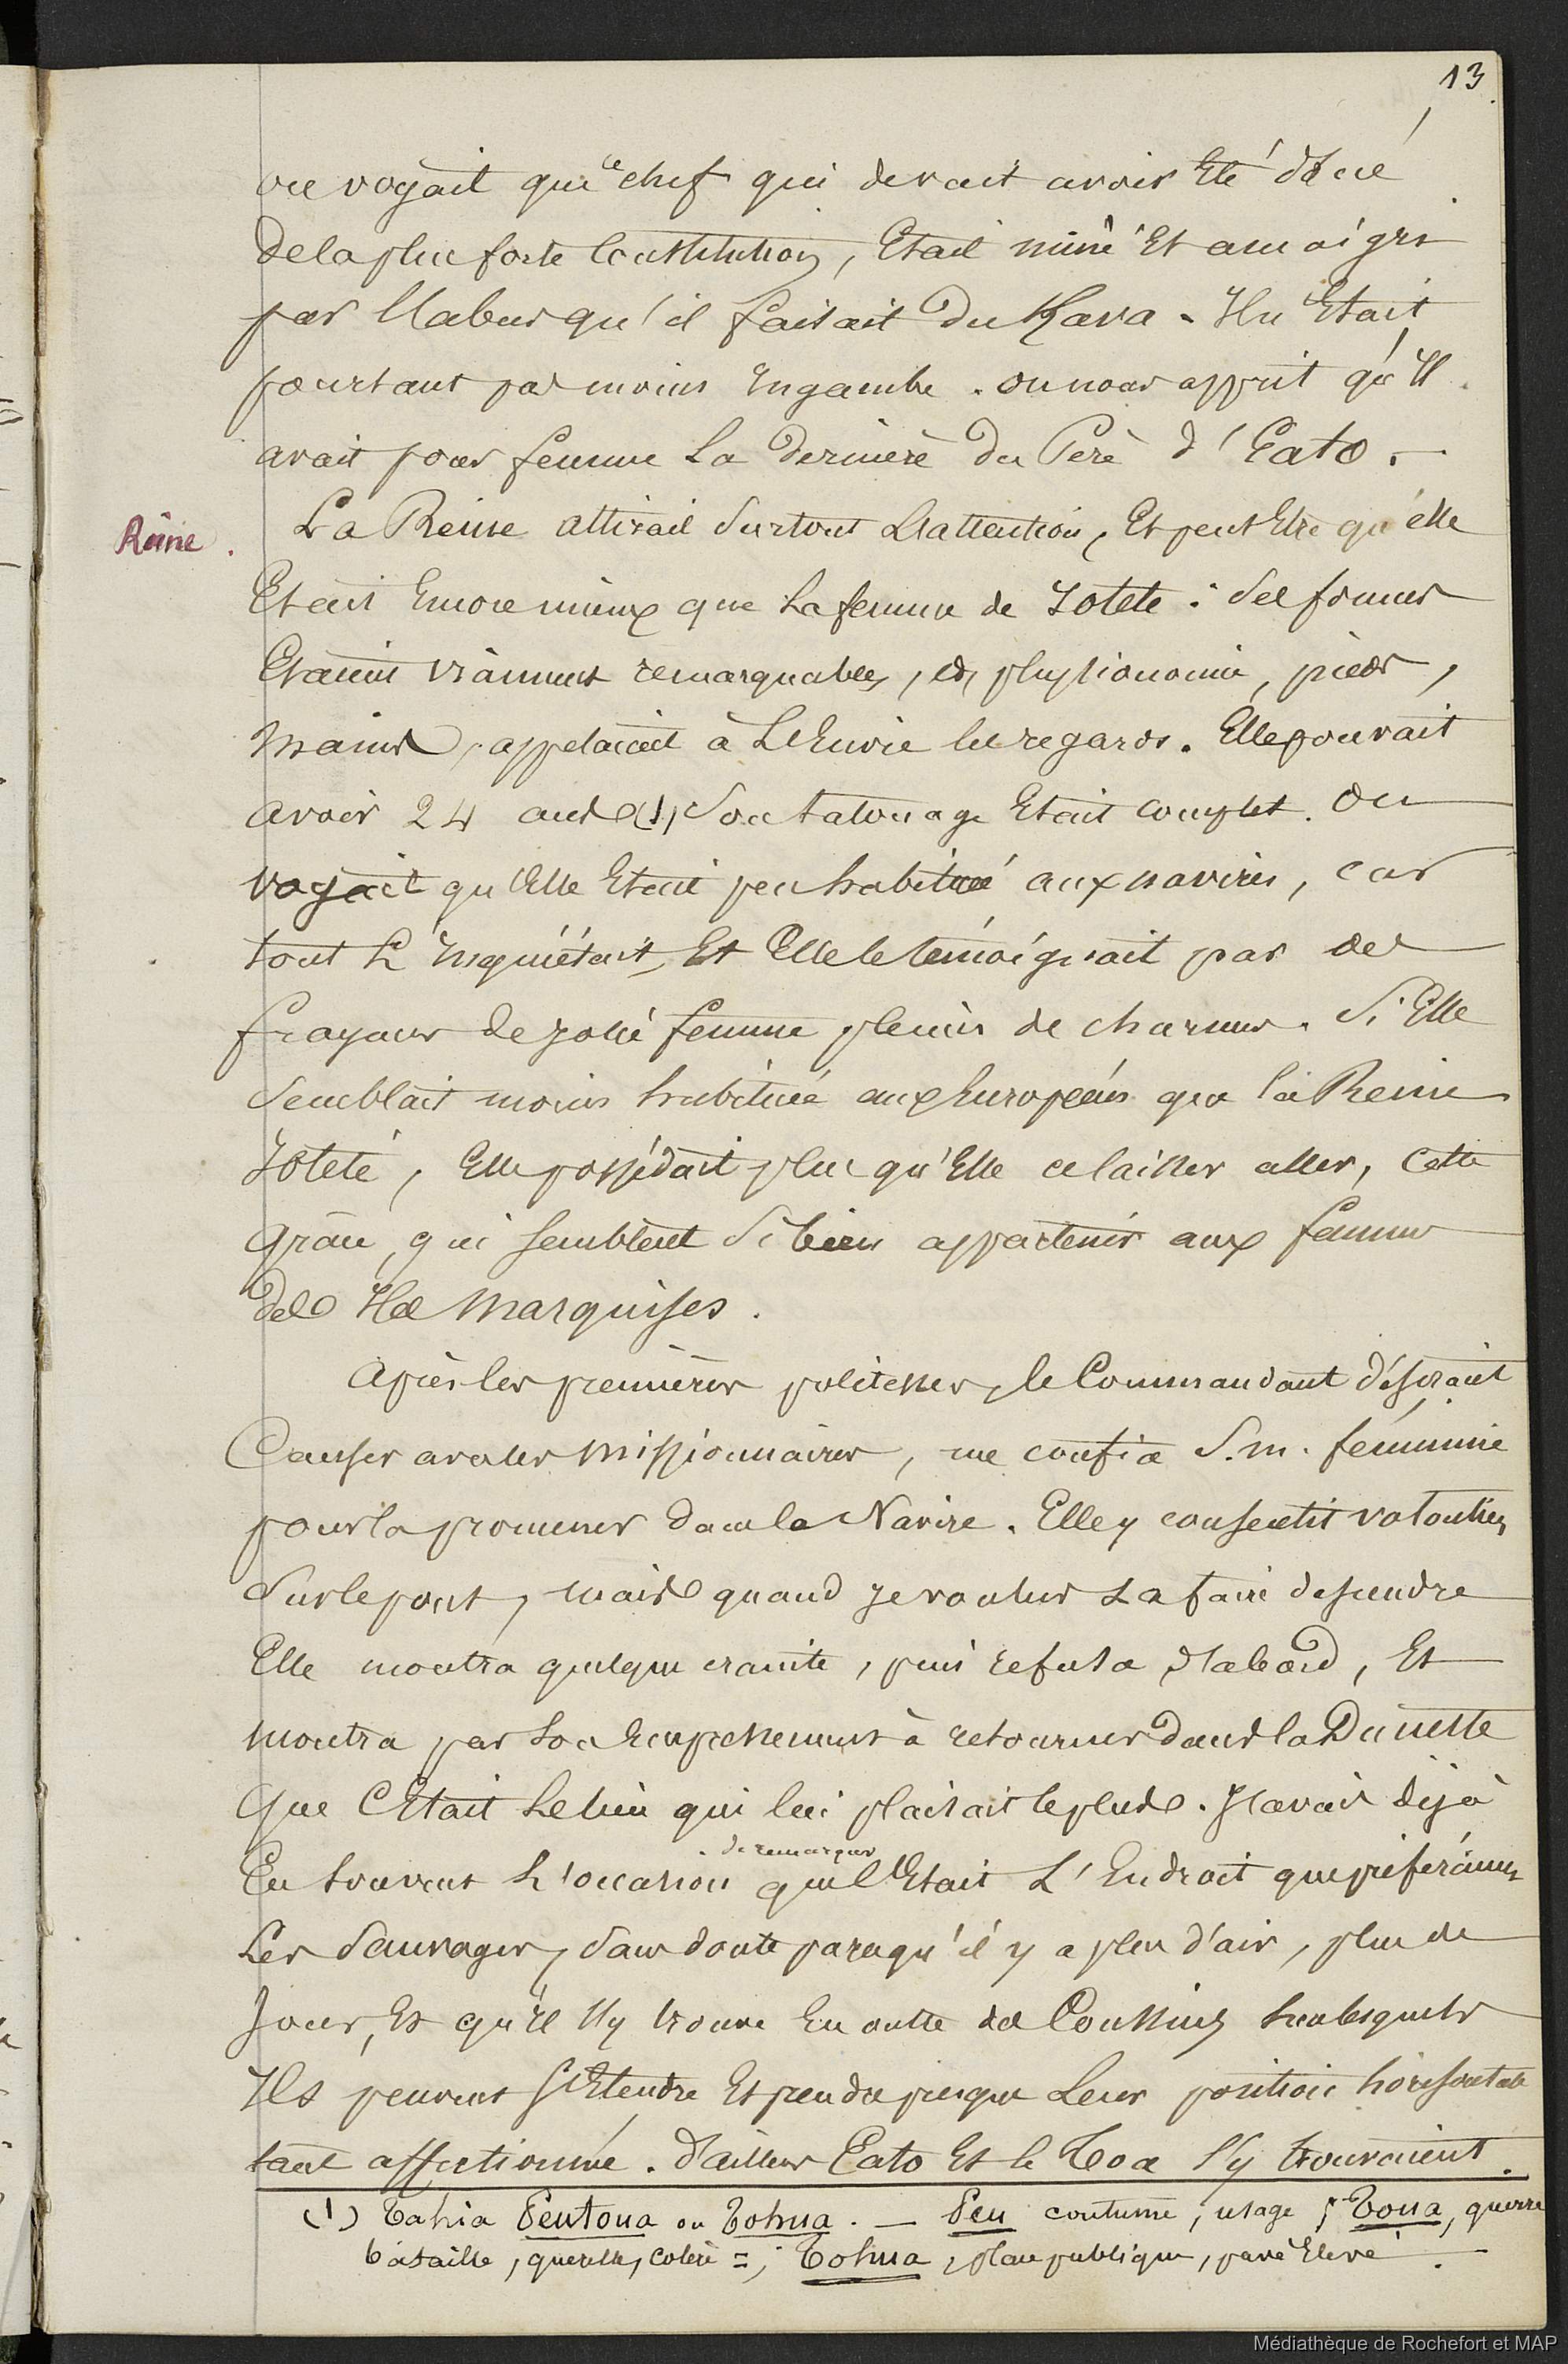 13
on voyait que ce chef qui devait avoir Eté doué
de la plus forte Constitution, Etait miné Et amaigri
par l'abus qu'il faisait du Kava. Il n'Etait
pourtant pas moins Engambe. on nous apprit qu'Il
avait pour femme la dernière du Père d'Eato.
Reine.
La Reine attirait surtout L'attention, Et peut Etre qu'elle
Etait Encore mieux que la femme de Iotété : ses formes
Etaient vraiment remarquables, et physionomie, pieds,
mains, appelaient à L'Envie les regards. Elle pouvait
avoir 24 ans (1) Son tatouage Etait complet. On
voyait qu'Elle Etait peu habituée aux navires, car
tout L'inquiétait, Et Elle le témoignait par des
frayeurs de jolie femme pleines de charmes. Si Elle
Semblait moins habituée aux Européens que la Reine
Iotété, Elle possédait plus qu'Elle ce laisser aller, cette
grâce, qui semblent Si bien appartenir aux femmes
des Iles Marquises.
Après les premières politesses, le Commandant désirant
Causer avec les missionnaires, me confia S. m. féminine
pour la promener dans le Navire. Elle y consentit volontiers
Sur le pont, mais quand je voulus La faire descendre
Elle montra quelque crainte, puis refusa d'abord, Et
montra par son Empressement à retourner dans la Dunette
Que C'Etait Le lieu qui lui plaisait le plus. J'avais déjà
de remarquer
Eu souvent L'occasion que c'Etait L'Endroit que préféraient
Les Sauvages, Sans doute parcequ'il y a plus d'air, plus de
Jour, Et qu'Il s'y trouve En outre des Coussins sur lesquels
Ils peuvent s'Etendre Et prendre presque Leur position horisontale
tant affectionnée. D'ailleurs Eato Et le Toa s'y trouvaient.
(1) Tahia Peutoua ou Tohua. — Peu coutume, usage ; Toua, guerre
bataille, querelle, colère = ; Tohua, place publique, pavé Elevé.
Médiathèque de Rochefort et MAP